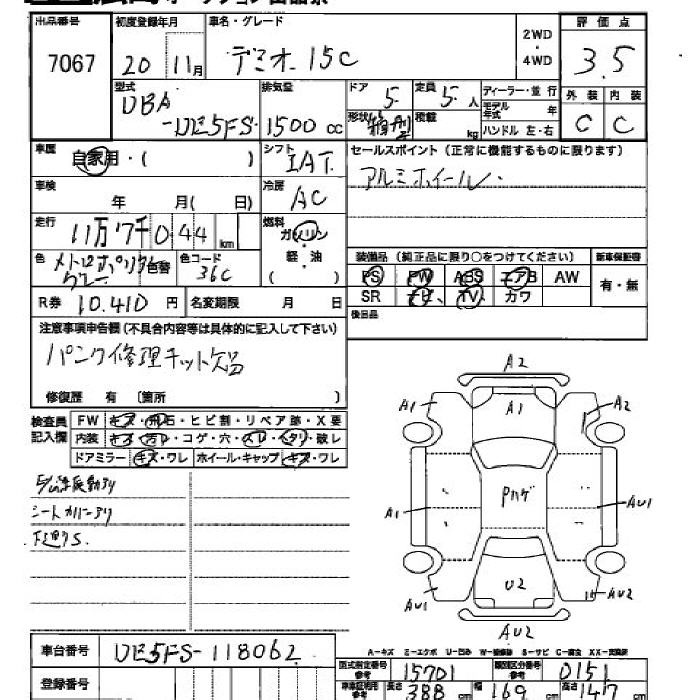 出品番号 初度登録年月 車名・グレード 2WD・4WD 評価点
7067 20 11月 デミオ 15C 3.5
型式 DBA-DE5FS 排気量 1500 cc ドア 5 定員 5人 ディーラー・並行 外装 内装
形状 積載 kg モデル年式 年 ハンドル 左・右 C C
車歴 自家用・( ) シフト IAT セールスポイント(正常に機能するものに限ります)
車検 年 月( 日) 冷房 AC アルミホイール
走行 11万7千044 km 燃料 ガソリン・軽・油 ( )
色 メトロポリタングレー 色替 色コード 36C 装備品(純正品に限り○をつけてください) 新車保証書
PS PW ABS エアB AW 有・無
R券 10.410 円 名変期限 月 日 SR ナビ TV カワ
注意事項申告欄(不具合内容等は具体的に記入して下さい) 後日品
パンク修理キット欠品
修復歴 有 〔箇所 〕
検査員記入欄 FW キズ・飛石・ヒビ割・リペア跡・X要
内装 キズ・汚レ・コゲ・穴・スレ・ヘタリ・破レ
ドアミラー キズ・ワレ ホイール・キャップ キズ・ワレ
シートカバーアリ
下廻りS
A2
A1 A1 A2
A1 Pハゲ AU1
AU1 U2 AU2
AU2
A-キズ ミ-エクボ U-凹み W-補修跡 S-サビ C-腐食 XX-交換済
車台番号 DE5FS-118062 型式指定番号 参考 15701 類別区分番号 参考 0151
登録番号 車車証明用 参考 長さ 388 cm 幅 169 cm 高さ 147 cm